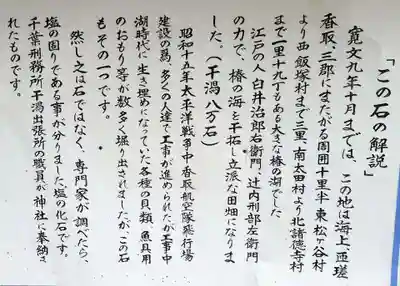 「この石の解説」
寛文九年十月までは、この地は海上、匝瑳
香取、三郡にまたがる周囲十里半、東、松ヶ谷村
より西、飯塚村まで三里、南太田村より北諸徳寺村
まで一里十九丁もある大きな椿の湖でした
江戸の人、白井治郎右衛門、辻内刑部左衛門
の力で、椿の海を干拓し立派な田畑になりま
した。(干潟八万石)
昭和十五年太平洋戦争中香取航空隊飛行場
建設の為、多くの人達で工事が進められたが工事中
湖時代に生き埋めになっていた各種の貝類、魚具用
のおもり等が数多く堀り出されましたが、この石
もその一つです。
然し之は石ではなく、専門家が調べたら、
塩の固りである事が分りました塩の化石です。
千葉刑務所干潟出張所の職員が神社に奉納さ
れたものです。